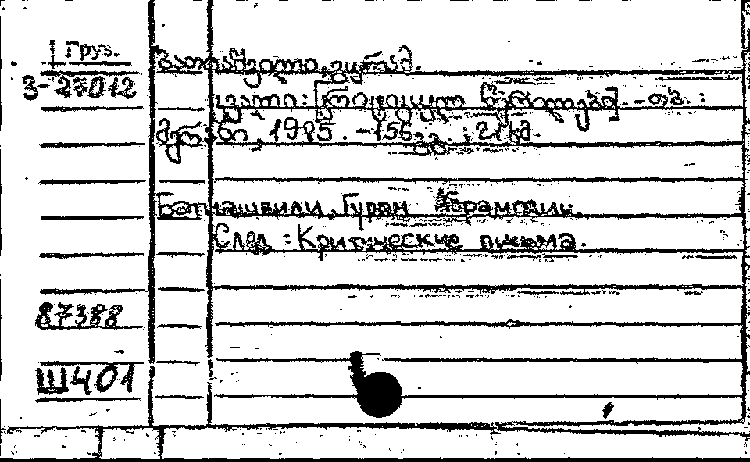 Груз.
3-27012
ბათიაშვილი, გურამ.
კვალი: [კრიტიკული წერილები]. -თბ. :
მერანი, 1985. -156გვ. ; 21სმ.
Батиашвили, Гурам Абрамович.
След : Критические письма.
87388
Ш401